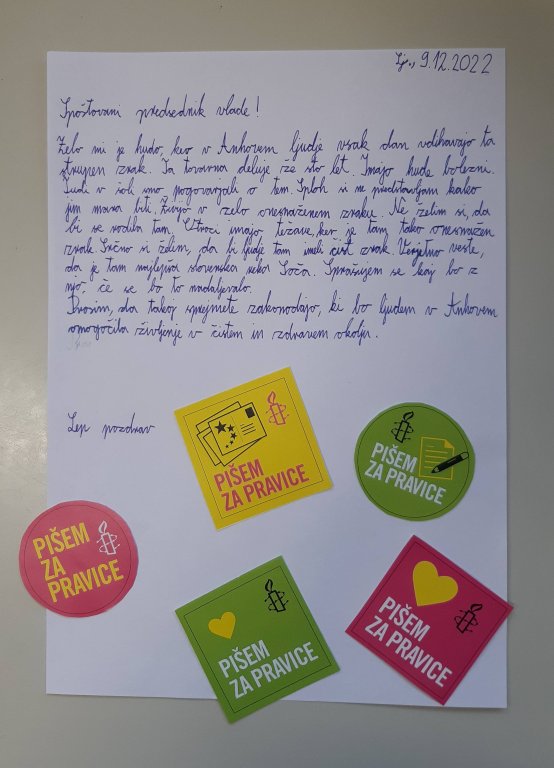 Lj., 9.12.2022
Spoštovani predsednik vlade!
Zelo mi je hudo, ker v Anhovem ljudje vsak dan vdihavajo ta
strupen zrak. Ta tovarna deluje že sto let. Imajo hude bolezni.
Tudi v šoli smo pogovarjali o tem. Sploh si ne predstavljam kako
jim mora biti. Živijo v zelo onesnaženem zraku. Ne želim si, da
bi se rodila tam. Otroci imajo težave, ker je tam tako onesnažen
zrak. Srčno si želim, da bi ljudje tam imeli čist zrak. Verjetno veste,
da je tam najlepša slovenska reka Soča. Sprašujem se kaj bo z
njo, če se bo to nadaljevalo.
Prosim, da takoj sprejmete zakonodajo, ki bo ljudem v Anhovem
omogočila življenje v čistem in zdravem okolju.
Lep pozdrav
PIŠEM
ZA PRAVICE
PIŠEM
ZA PRAVICE
PIŠEM
ZA
PRAVICE
PIŠEM
ZA PRAVICE
PIŠEM
ZA PRAVICE